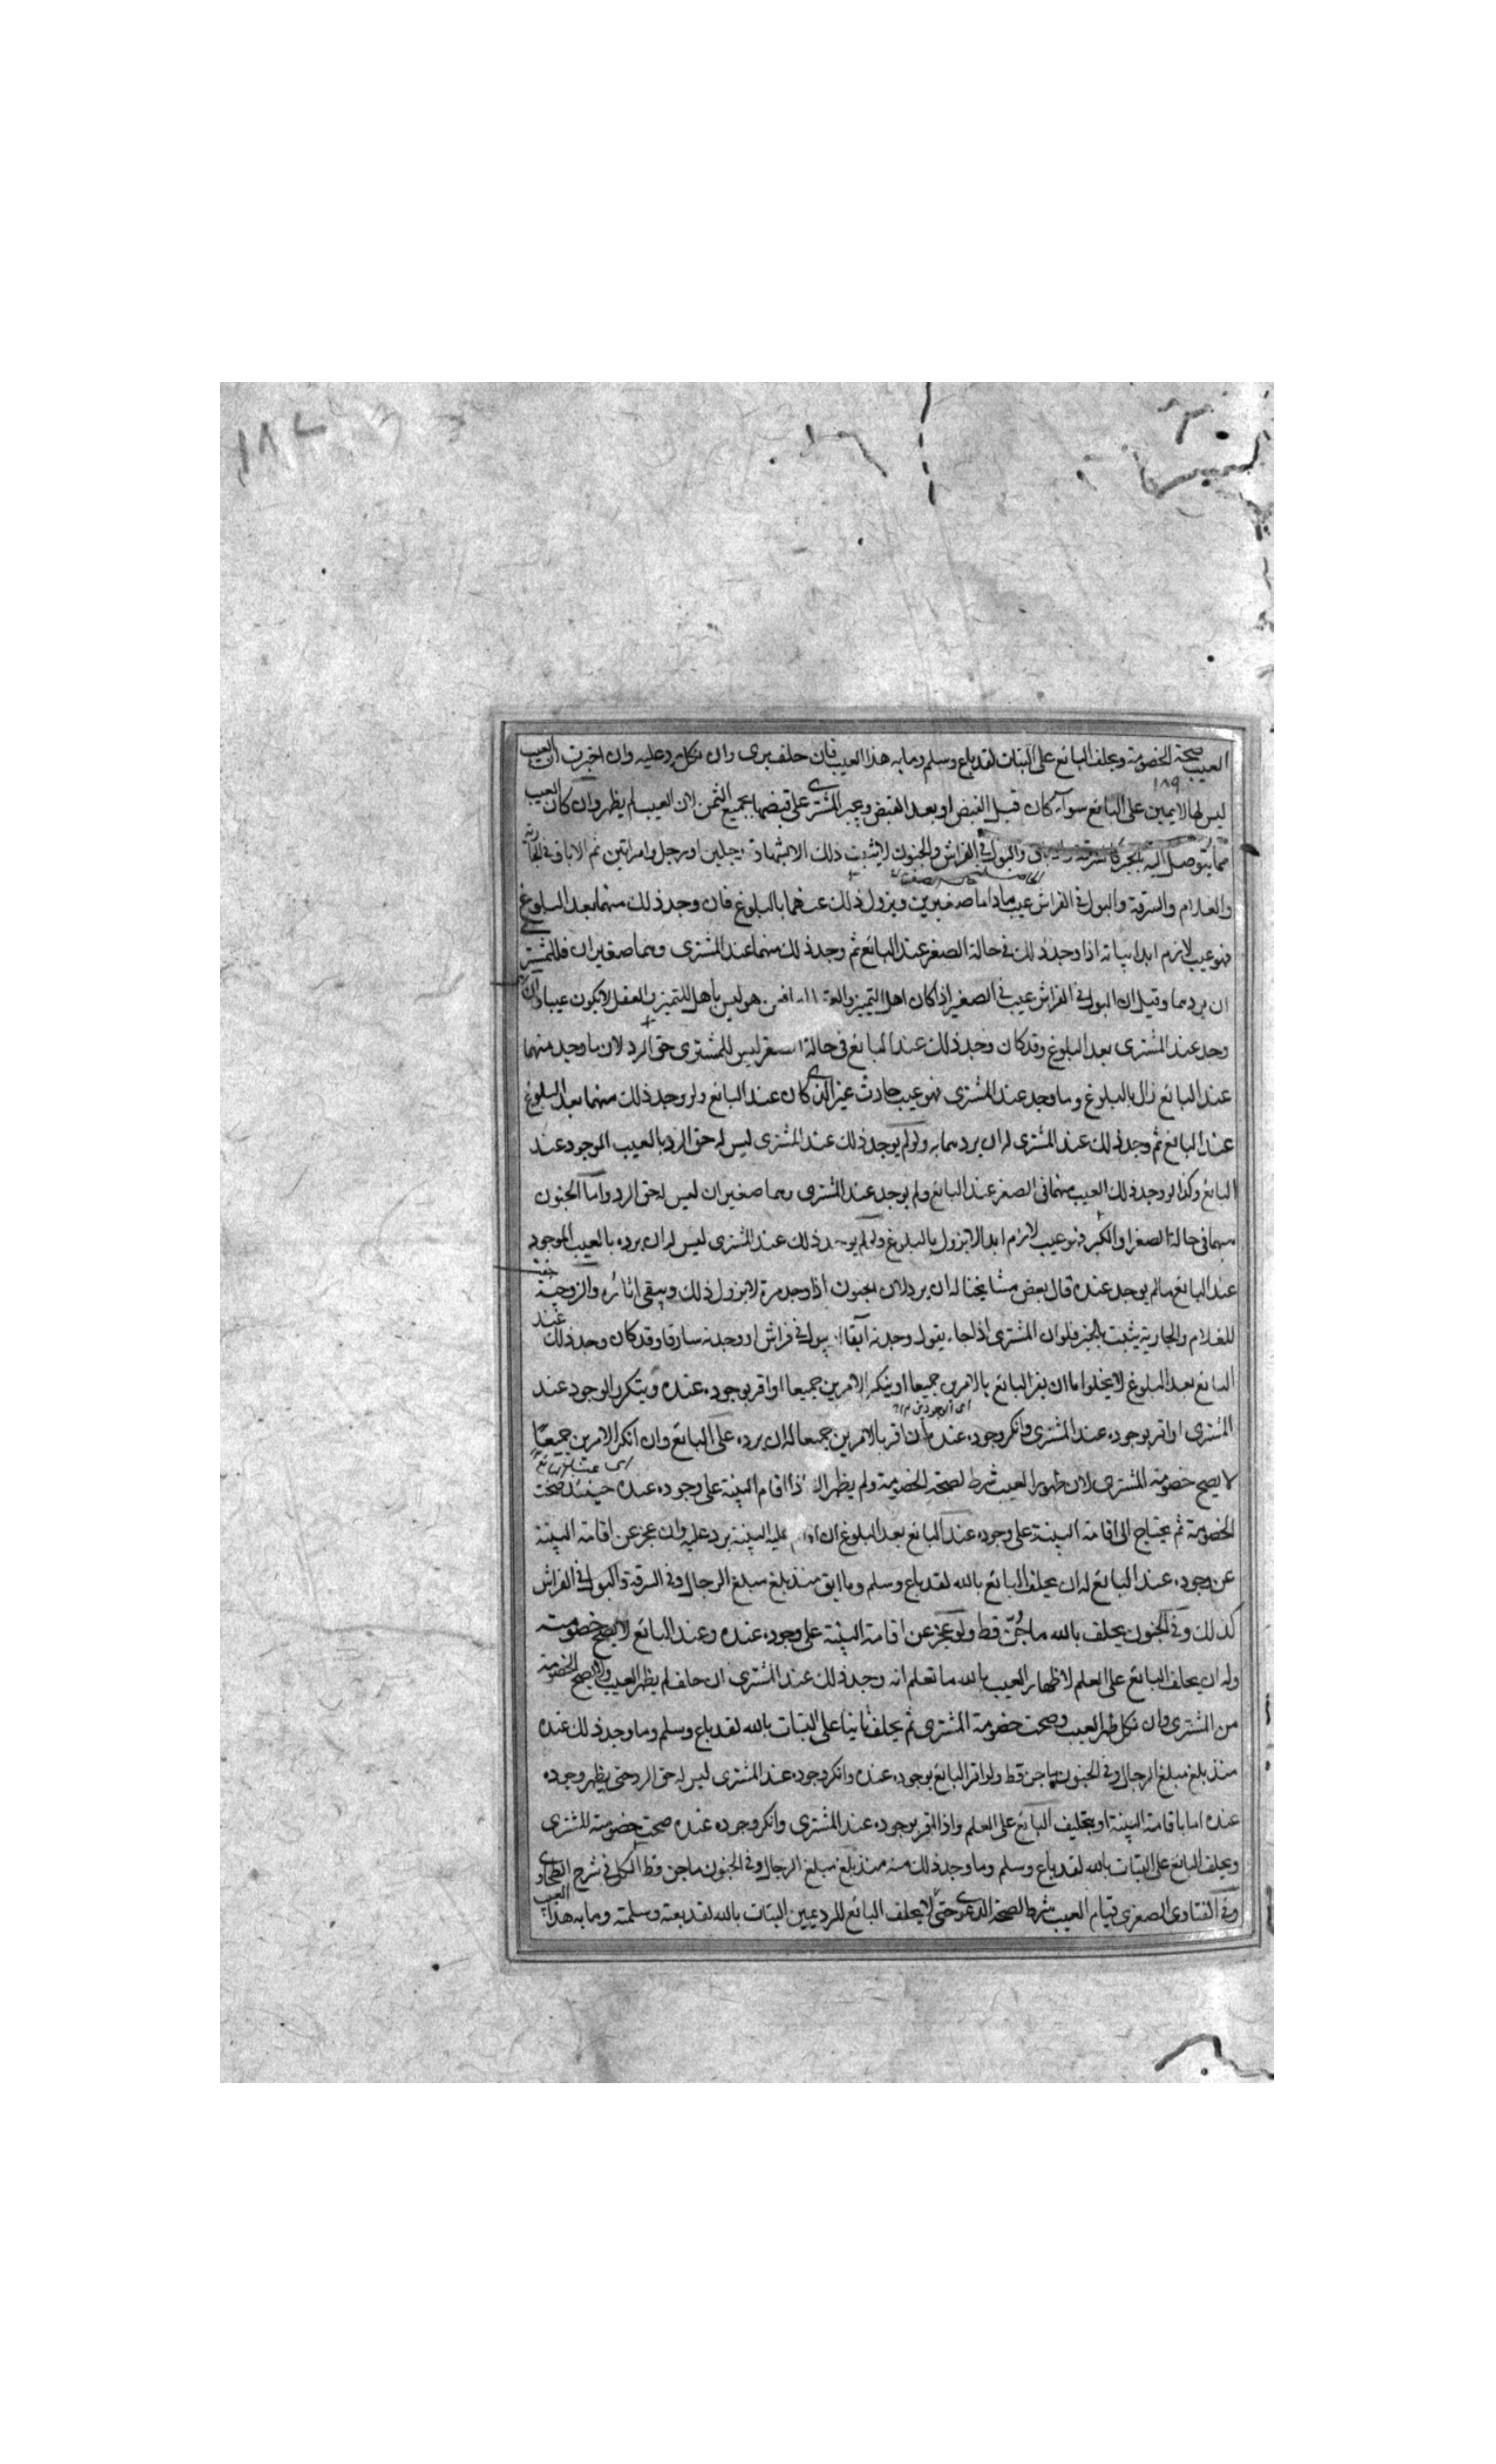 ١٨٢
العيب صحة الخصومة ويحلف البائع على البتات لقد باع وسلم وما به هذا العيب فان حلف برى وان نكل يرد عليه وان اخبرت ان العيب
١٨٩
ليس لها لا يمين على البائع سوآء كان قبل القبض او بعد القبض ويجبر المشترى على قبضها بجميع الثمن لان العيب لم يظهر وان كان العيب
مما يتوصل اليه بالخبر والبول في الفراش والجنون لا يثبت ذلك الا بشهادة رجلين او رجل وامراتين ثم الاباق في الجارية
والغلام والسرقة والبول في الفراش عيب ما داما صغيرين ويزول ذلك عنهما بالبلوغ فان وجد ذلك منهما بعد البلوغ
فهو عيب لازم ابدا بيانه اذا وجد ذلك في حالة الصغر عند البائع ثم وجد ذلك منهما عند المشترى وهما صغيران فللمشترى
ان يردهما وقيل ان البول في الفراش عيب في الصغير اذا كان اهل التمييز هو ليس باهل للتمييز والعقل لا يكون عيبا وان
وجد عند المشترى بعد البلوغ وقد كان وجد ذلك عند البائع في حالة الصغر ليس للمشترى حق الرد لان ما وجد منهما
عند البائع زال بالبلوغ وما وجد عند المشترى فهو عيب حادث غير الذى كان عند البائع ولو وجد ذلك منهما بعد البلوغ
عند البائع ثم وجد ذلك عند المشترى له ان يردهما به ولو لم يوجد ذلك عند المشترى ليس له حق الرد بالعيب الموجود عند
البائع وكذا لو وجد ذلك العيب منهما في الصغر عند البائع ولم يوجد عند المشترى وهما صغيران ليس له حق الرد واما الجنون
منهما في حالة الصغر او الكبر فهو عيب لازم ابدا لا يزول بالبلوغ ولو لم يوجد ذلك عند المشترى ليس له ان يرده بالعيب الموجود
عند البائع مالم يوجد عنده قال بعض مشايخنا له ان يرد لان الجنون اذا وجد مرة لا يزول ذلك ويبقى اثاره والزوجية
للغلام والجارية يثبت بالخبر فلو ان المشترى اذا جاء يقول وجدته آبقا يبول في فراش او وجدته سارقا وقد كان وجد ذلك عند
البائع بعد البلوغ لا يخلوا اما ان يقر البائع بالامرين جميعا او ينكر الامرين جميعا او اقر بوجوده عنده وينكر الوجود عند
المشترى او اقر بوجوده عند المشترى وانكر وجوده عنده فان اقر بالامرين جميعا له ان يرده على البائع وان انكر الامرين جميعا
لا يصح خصومة المشترى لان ظهور العيب شرط لصحة الخصومة ولم يظهر اذا اقام البينة على وجوده عنده حينئذ صحت
الخصومة ثم يحتاج الى اقامة البينة على وجوده عند البائع بعد البلوغ ان اقام عليه البينة يرد عليه وان عجز عن اقامة البينة
عن وجوده عند البائع له ان يحلف البائع بالله لقد باع وسلم وما ابق منذ بلغ مبلغ الرجال وفي السرقة والبول في الفراش
كذلك وفي الجنون يحلف بالله ما جُنّ قط ولو عجز عن اقامة البينة على وجوده عنده وعند البائع لا يصح خصومته
وله ان يحلف البائع على العلم لاظهار العيب بالله ما تعلم انه وجد ذلك عند المشترى ان حلف لم يظهر العيب ولا يصح الخصومة
من المشترى وان نكل ظهر العيب وصحت خصومة المشترى ثم يحلف ثانيا على البتات بالله لقد باع وسلم وما وجد ذلك عنده
منذ بلغ مبلغ الرجال وفي الجنون ما جن قط ولو اقر البائع بوجوده عنده وانكر وجوده عند المشترى ليس له حق الرد حتى يظهر وجوده
عنده اما باقامة البينة او بتحليف البائع على العلم واذا اقر بوجوده عند المشترى وانكر وجوده عنده صحت خصومة المشترى
ويحلف البائع على البتات بالله لقد باع وسلم وما وجد ذلك منه منذ بلغ مبلغ الرجال وفي الجنون ما جن قط الكل في شرح الطحاوى
وفي الفتاوى الصغرى قيام العيب شرط لصحة الدعوى حتى لا يحلف البائع للرد يمين البتات بالله لقد بعته وسلمته وما به هذا العيب